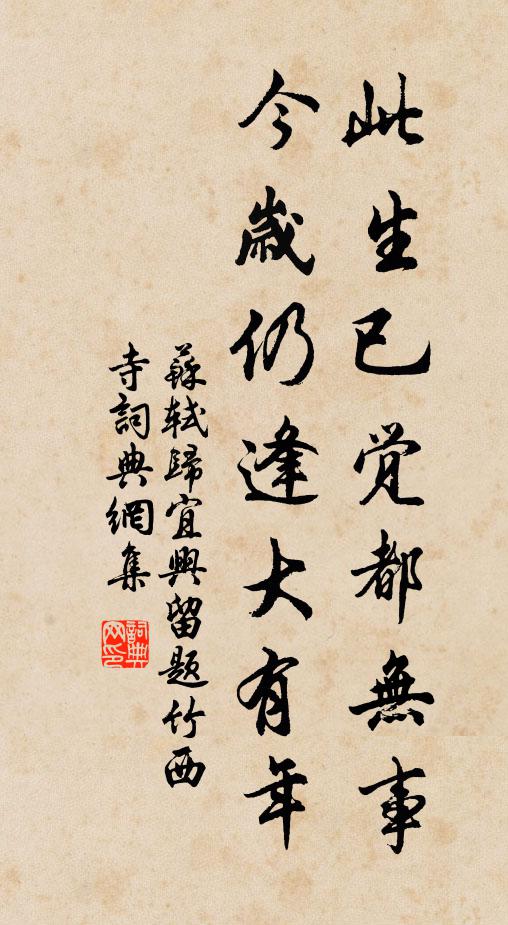 此生已觉都無事
今歲仍逢大有年
蘇軾歸宜興留题竹西
寺詞典網集
詞典
网印